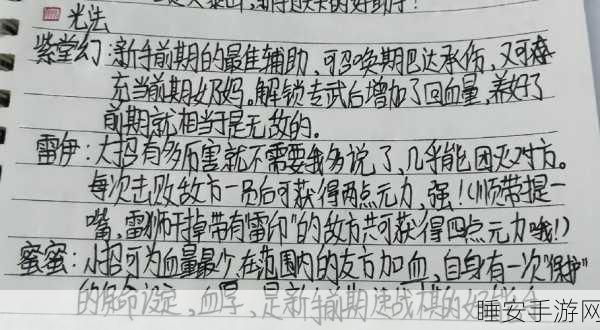 光法
紫堂幻:新手前期的最佳辅助,可召唤期巴达承伤,又可
充当前期奶妈。解锁专武后增加了回血量,养好了
前期就相当于是无敌的。
雷伊:大招有多厉害就不需要我多说了,几乎能团灭对方。
每次击败敌方一员后可获得两点元力,强!(顺带提一
嘴,雷狮干掉带有"雷印"的敌方共可获得四点元力哦!)
蜜蜜:小招可为血量最少在范围内的友方加血,自身有一次"保护"
的免命设定,血厚,是新手前期速战棋的好
睡安手游网